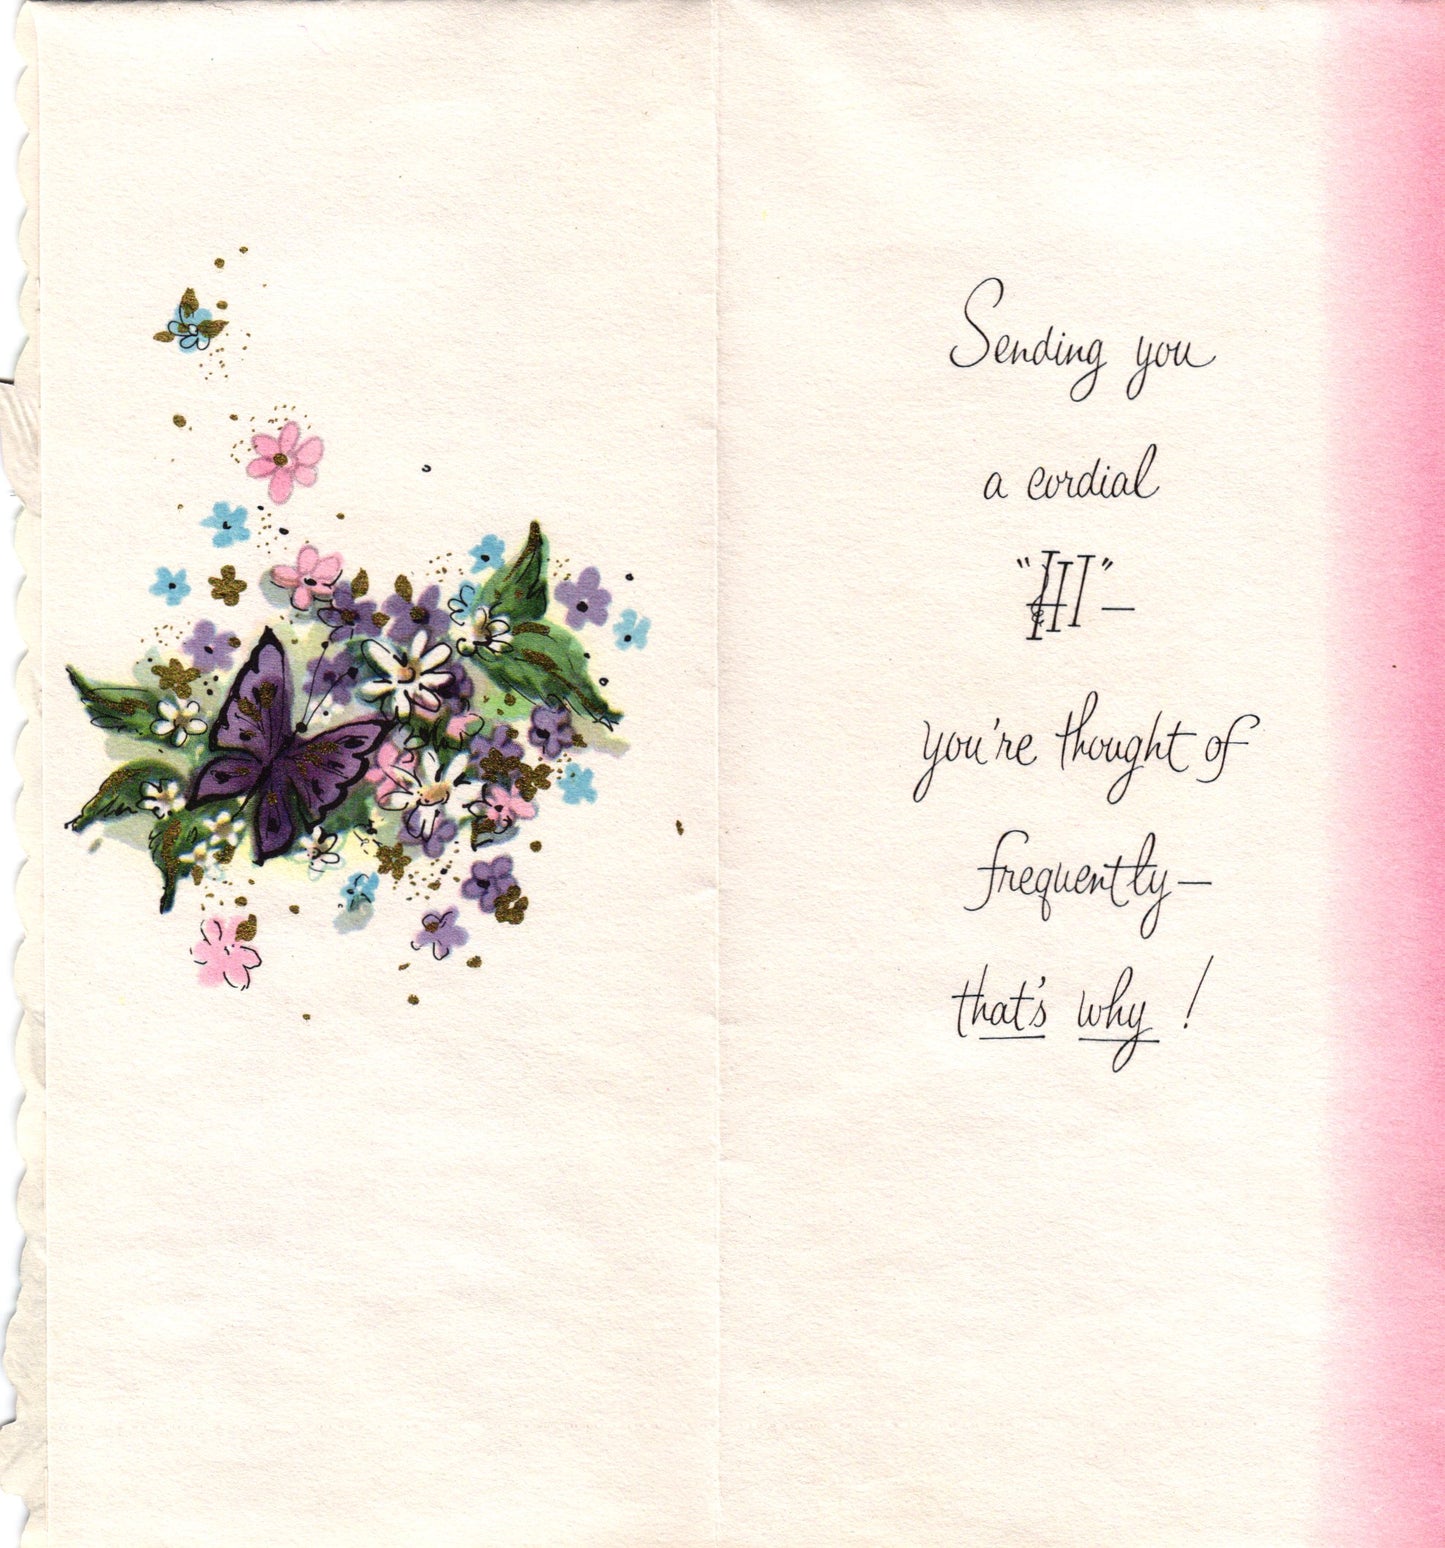 Sending you
a cordial
"HI"—
you're thought of
frequently—
that's why!